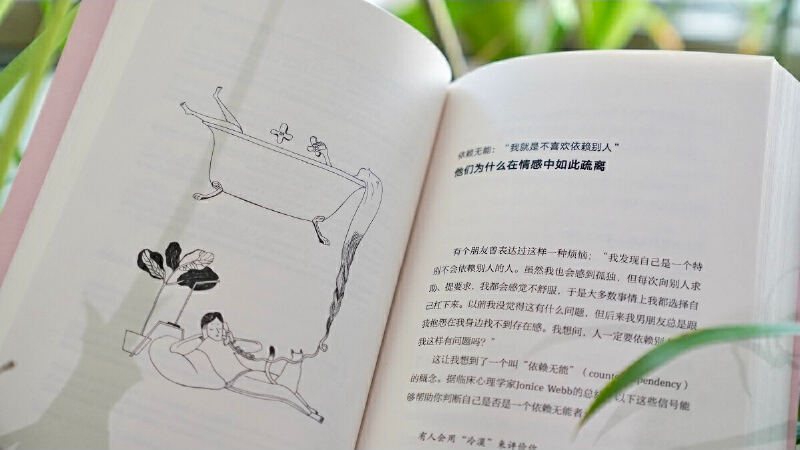 依赖无能：“我就是不喜欢依赖别人”
他们为什么在情感中如此疏离
有个朋友曾表达过这样一种烦恼：“我发现自己是一个特
别不会依赖别人的人。虽然我也会感到孤独，但每次向别人求
助、提要求，我都会感觉不舒服，于是大多数事情上我都选择自
己扛下来。以前我没觉得这有什么问题，但后来我男朋友总是跟
我抱怨在我身边找不到存在感。我想问，人一定要依赖别
我这样有问题吗？”
这让我想到了一个叫“依赖无能”（counte dependency）
的概念。据临床心理学家Jonice Webb的总结，以下这些信号能
够帮助你判断自己是否是一个依赖无能者
有人会用“冷漠”来评价你